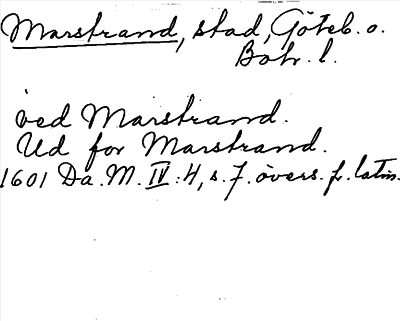 Marstrand, stad, Göteb. o.
Boh. l.
ved Marstrand.
Ud for Marstrand.
1601 Da. M. IV:4, s. 7. övers. fr. latin.